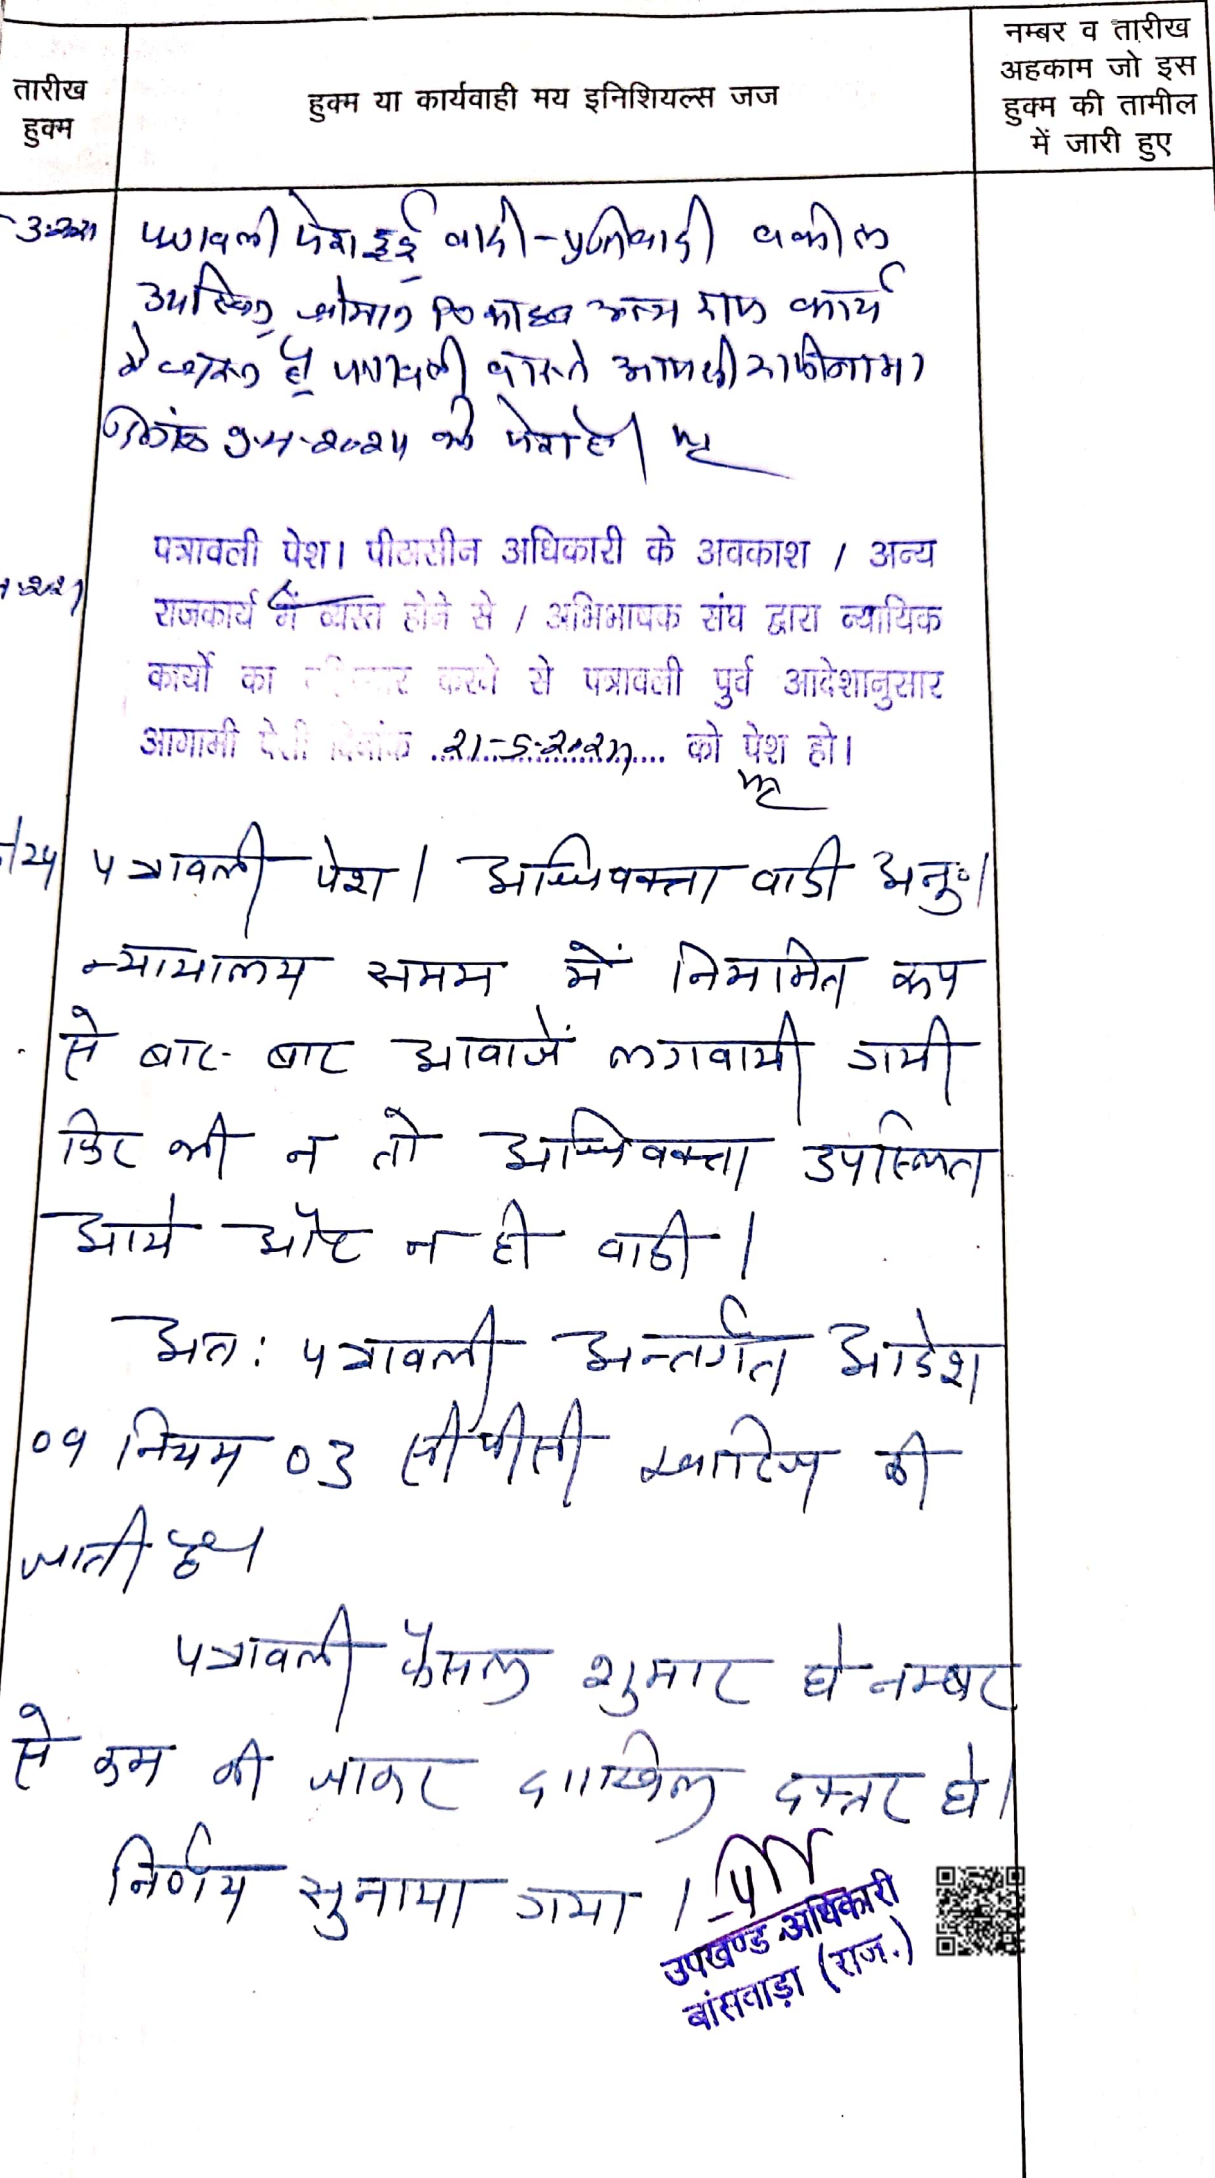 तारीख
हुक्म
हुक्म या कार्यवाही मय इनिशियल्स जज
नम्बर व तारीख
अहकाम जो इस
हुक्म की तामील
में जारी हुए
पत्रावली पेश हुई वादी-प्रतिवादी वकील
उपस्थित श्रीमान अन्य राज कार्य
में व्यस्त है पत्रावली वास्ते आपसी राजीनामा
दिनांक 9-4-2024 को पेश हो।
पत्रावली पेश। पीठासीन अधिकारी के अवकाश / अन्य
राजकार्य में व्यस्त होने से / अभिभाषक संघ द्वारा न्यायिक
कार्यो का करने से पत्रावली पुर्व आदेशानुसार
आगामी पेशी दिनांक 21-5-2024 को पेश हो।
पत्रावली पेश। अधिवक्ता वादी अनु०।
न्यायालय समय में नियमित रूप
से बार-बार आवाजें लगवायी गयी
फिर भी न तो अधिवक्ता उपस्थित
आये और न ही वादी।
अतः पत्रावली अन्तर्गत आदेश
09 नियम 03 सीपीसी खारिज की
जाती है।
पत्रावली फैसल शुमार हो नम्बर
से कम की जाकर दाखिल दफ्तर हो।
निर्णय सुनाया गया।
उपखण्ड अधिकारी
बांसवाड़ा (राज.)